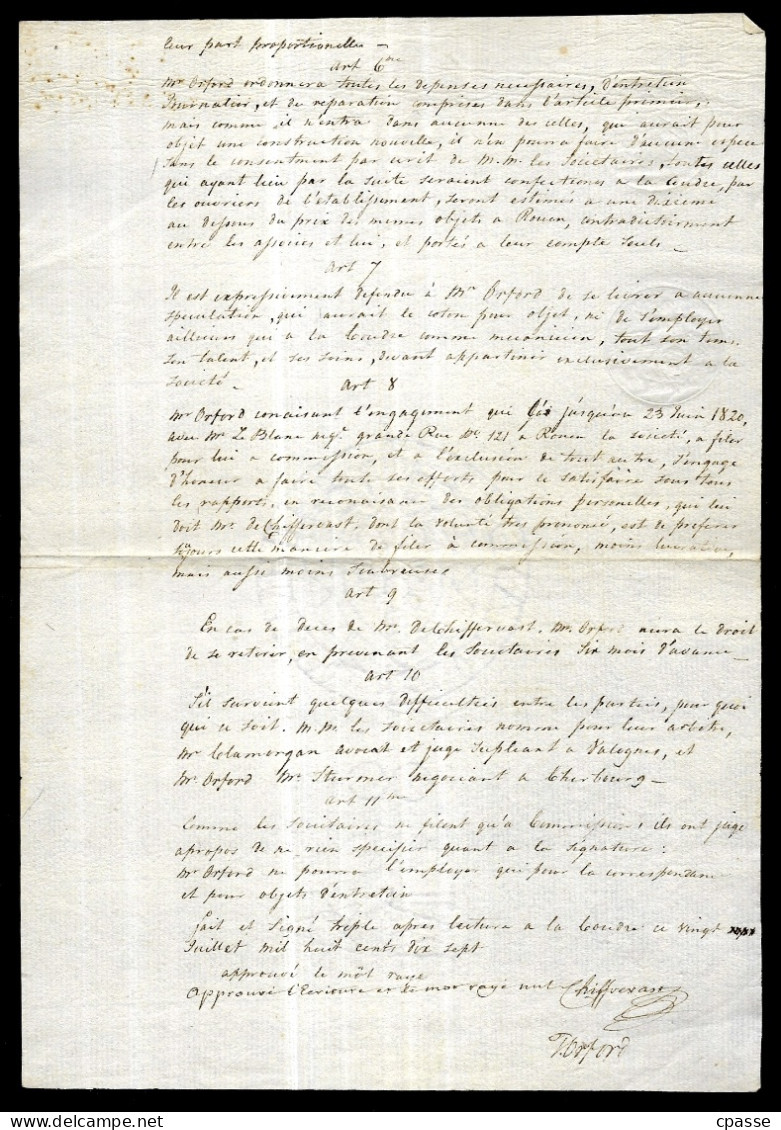 leur part proportionelle -
art 6me
Mr Orford ordonnera toutes les depenses necessaires, d'entretien
Journalier, et de reparation comprises dans l'article premier,
mais comme il n'entra dans aucune des celles, qui aurait pour
objet une construction nouvelle, il n'en pourra faire d'aucun espece
sans le consentment par ecrit de M.M. les Societaires, toutes celles
qui ayant lieu par la suite seraient confectiones a la Coudre, par
les ouvriers de l'etablissement, seront estimés a une dixieme
au dessous du prix des memes objets a Rouen, contradictoirment
entre les associés et lui, et portés a leur compte seuls -
art 7
Il est expressivement defendu à Mr Orford de se livrer a aucunne
speculation, qui aurait le coton pour objet, ni de s'employer
ailleurs qui a la Coudre comme mecanicien, tout son tems
son talent, et ses soins, devant appartinir exclusivement a la
Societé -
art 8
Mr Orford conaisant l'engagement qui lie jusqu'au 23 Juin 1820,
avec Mr Le Blanc neg.t grande Rue No 121 a Rouen la societé, a filer
pour lui a commission, et a l'exclusion de tout autre, s'engage
d'honeur a faire toute ses efforts pour le satisfaire sous tous
les rapports, en reconaisance des obligations personelles, qui lui
doit Mr. de Chiffervast, dont la volonté tres prononcé, est de preferer
toujours cette maniere de filer à commission, moins lucrative,
mais aussi moins
art 9
En cas de deces de Mr. DeChiffervast, Mr. Orford aura le droit
de se retirer, en prevenant les Societaires six mois d'avance -
art 10
S'il survient quelques difficulties entre les parties, pour quoi
qui ce soit. M.M. les Societaires nomme pour leur arbitre,
Mr Clamorgan avocat et juge supleant a Valognes, et
Mr. Orford Mr. Sturmer negociant a Cherbourg -
art 11me
Comme les Societaires ne filent qu'a Commission, ils ont jugé
apropos de ne rien specifier quant a la signature:
Mr Orford ne pourra l'employer qui pour la correspondance
et pour objets d'entretien
Fait et Signé triple apres lecture a la Coudre ce vingt
Juillet mil huit cents dix sept
approuvé le môt rayé
Approuvé l'Ecriture et le mot rayé nul Chiffrevast
T. Orford
cpasse